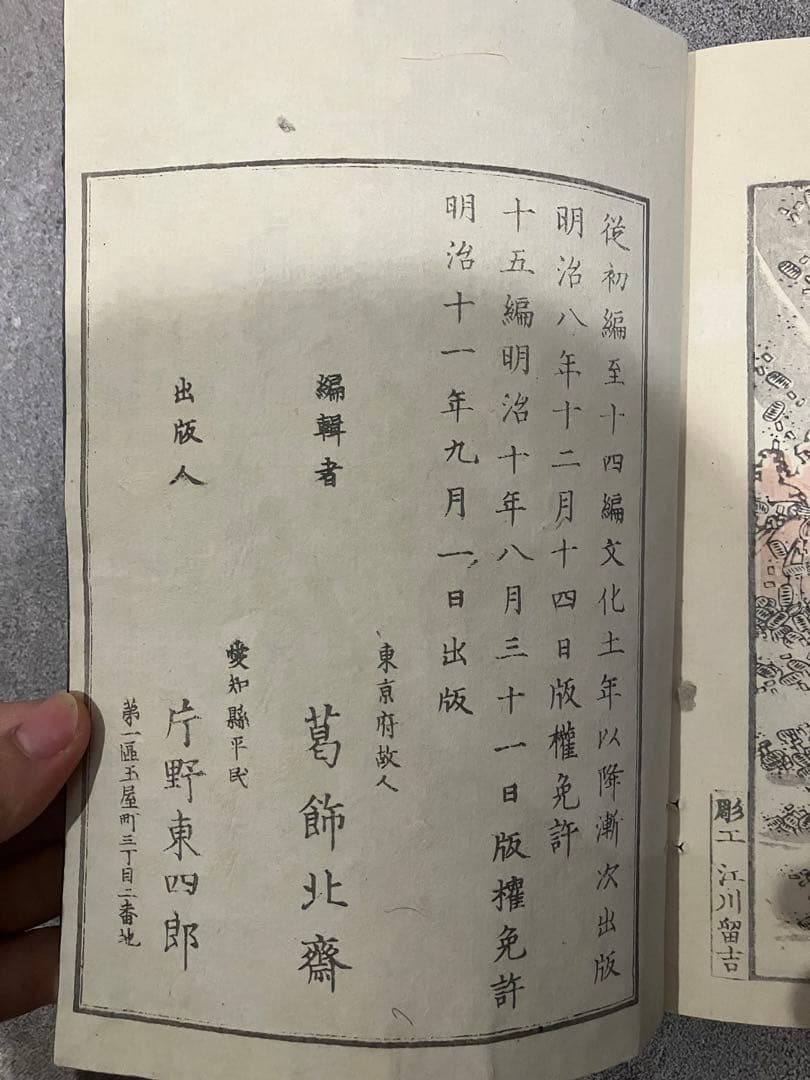 従初編至十四編文化土年以降漸次出版
明治八年十二月十四日版權免許
十五編明治十年八月三十一日版權免許
明治十一年九月一日出版
編輯者
東京府故人
葛飾北齋
出版人
愛知縣平民
片野東四郎
第一區玉屋町三丁目二番地
彫工 江川留吉